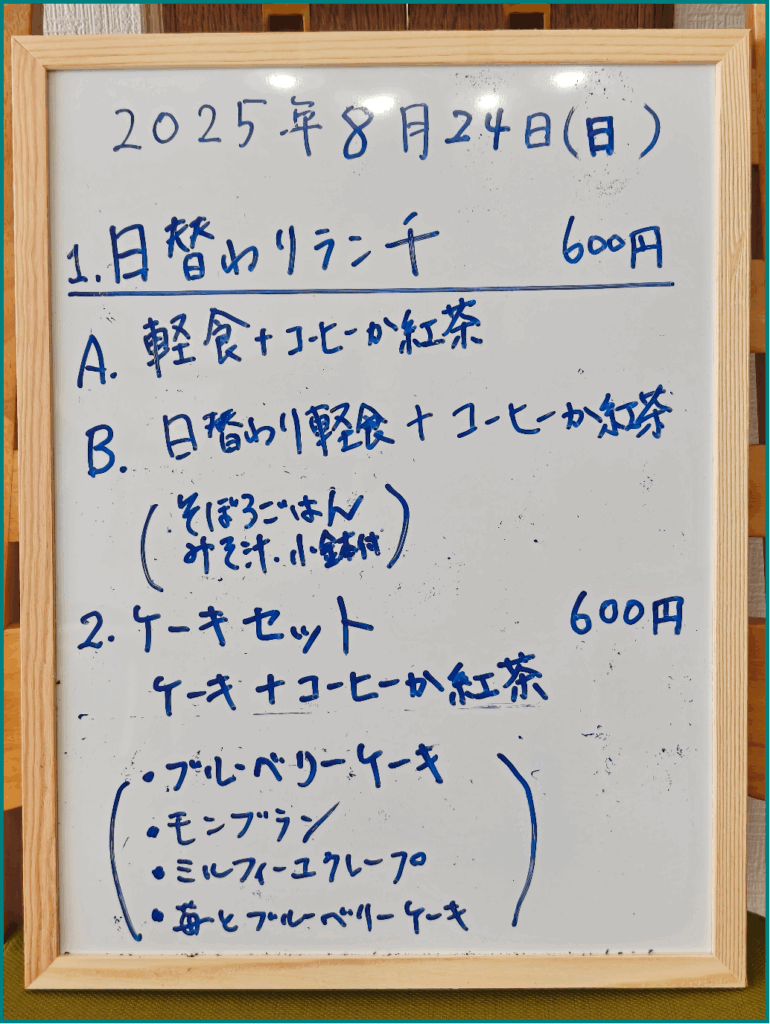 2025年8月24日(日)
1.日替わりランチ 600円
A. 軽食+コーヒーか紅茶
B. 日替わり軽食+コーヒーか紅茶
(そぼろごはん
みそ汁、小鉢付)
2.ケーキセット 600円
ケーキ+コーヒーか紅茶
(・ブルーベリーケーキ
・モンブラン
・ミルフィーユクレープ
・苺とブルーベリーケーキ)